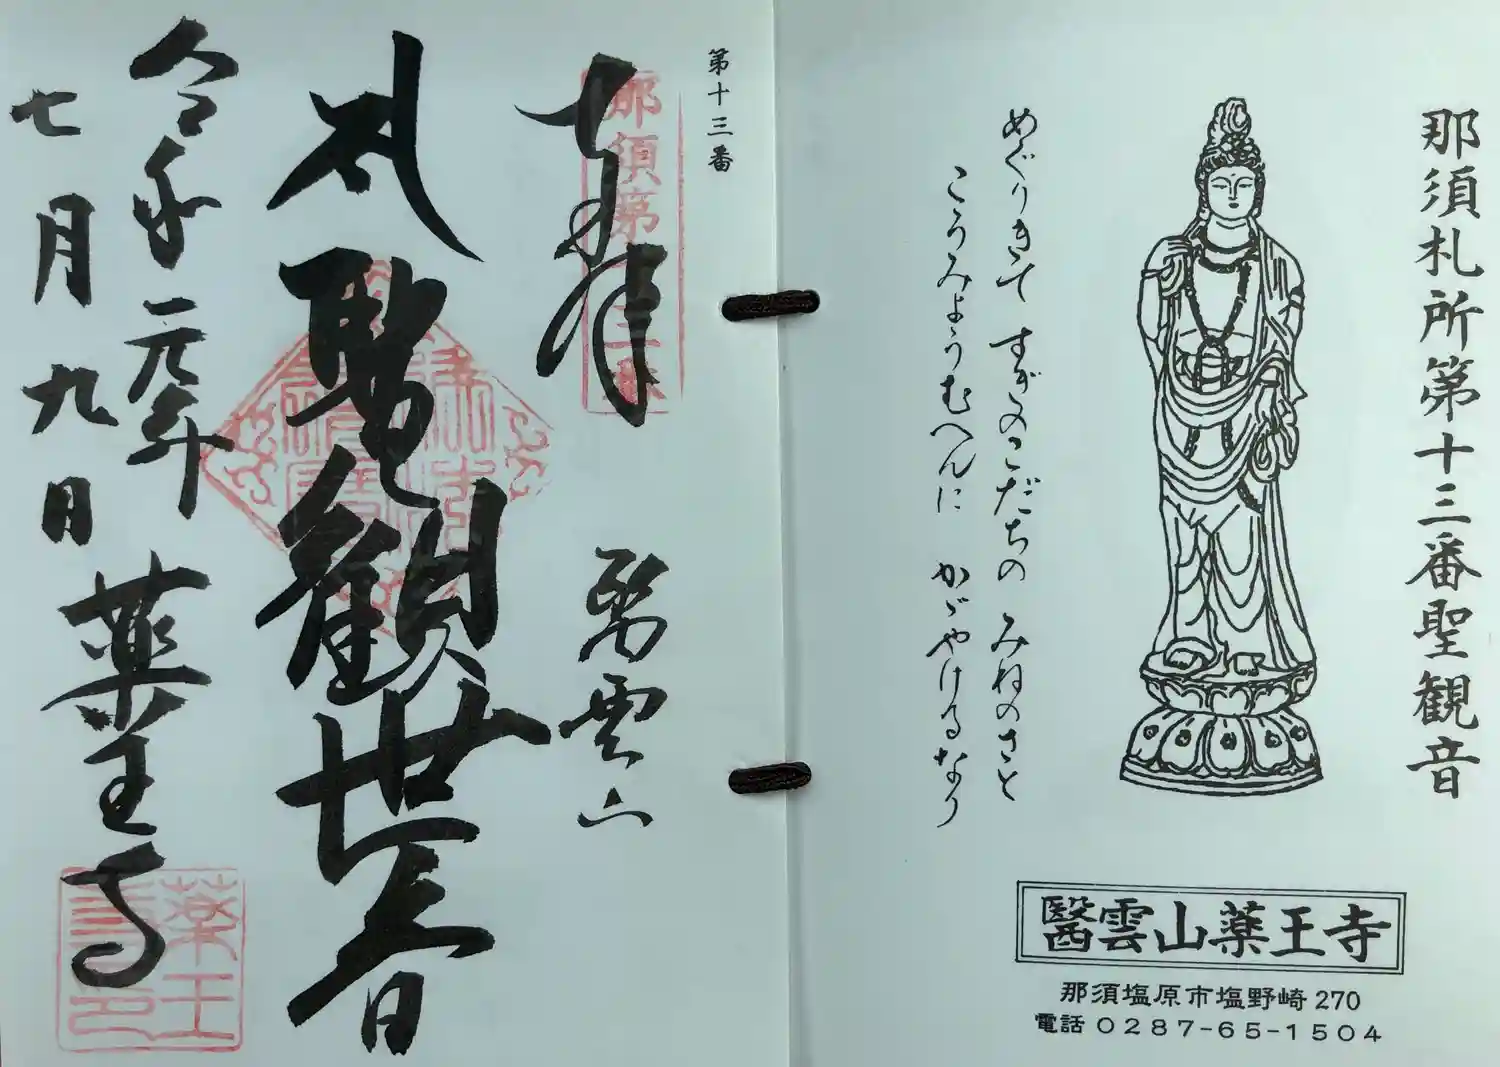 那須札所第十三番聖観音
めぐりきて すぎのこだちの みねのさと
こうみょうむへんに かゞやけるなり
醫雲山薬王寺
那須塩原市塩野崎270
電話 0287-65-1504
第十三番
奉拝
醫雲山
札 聖観世音
令和元年
七月九日
薬王寺
薬王
寺印